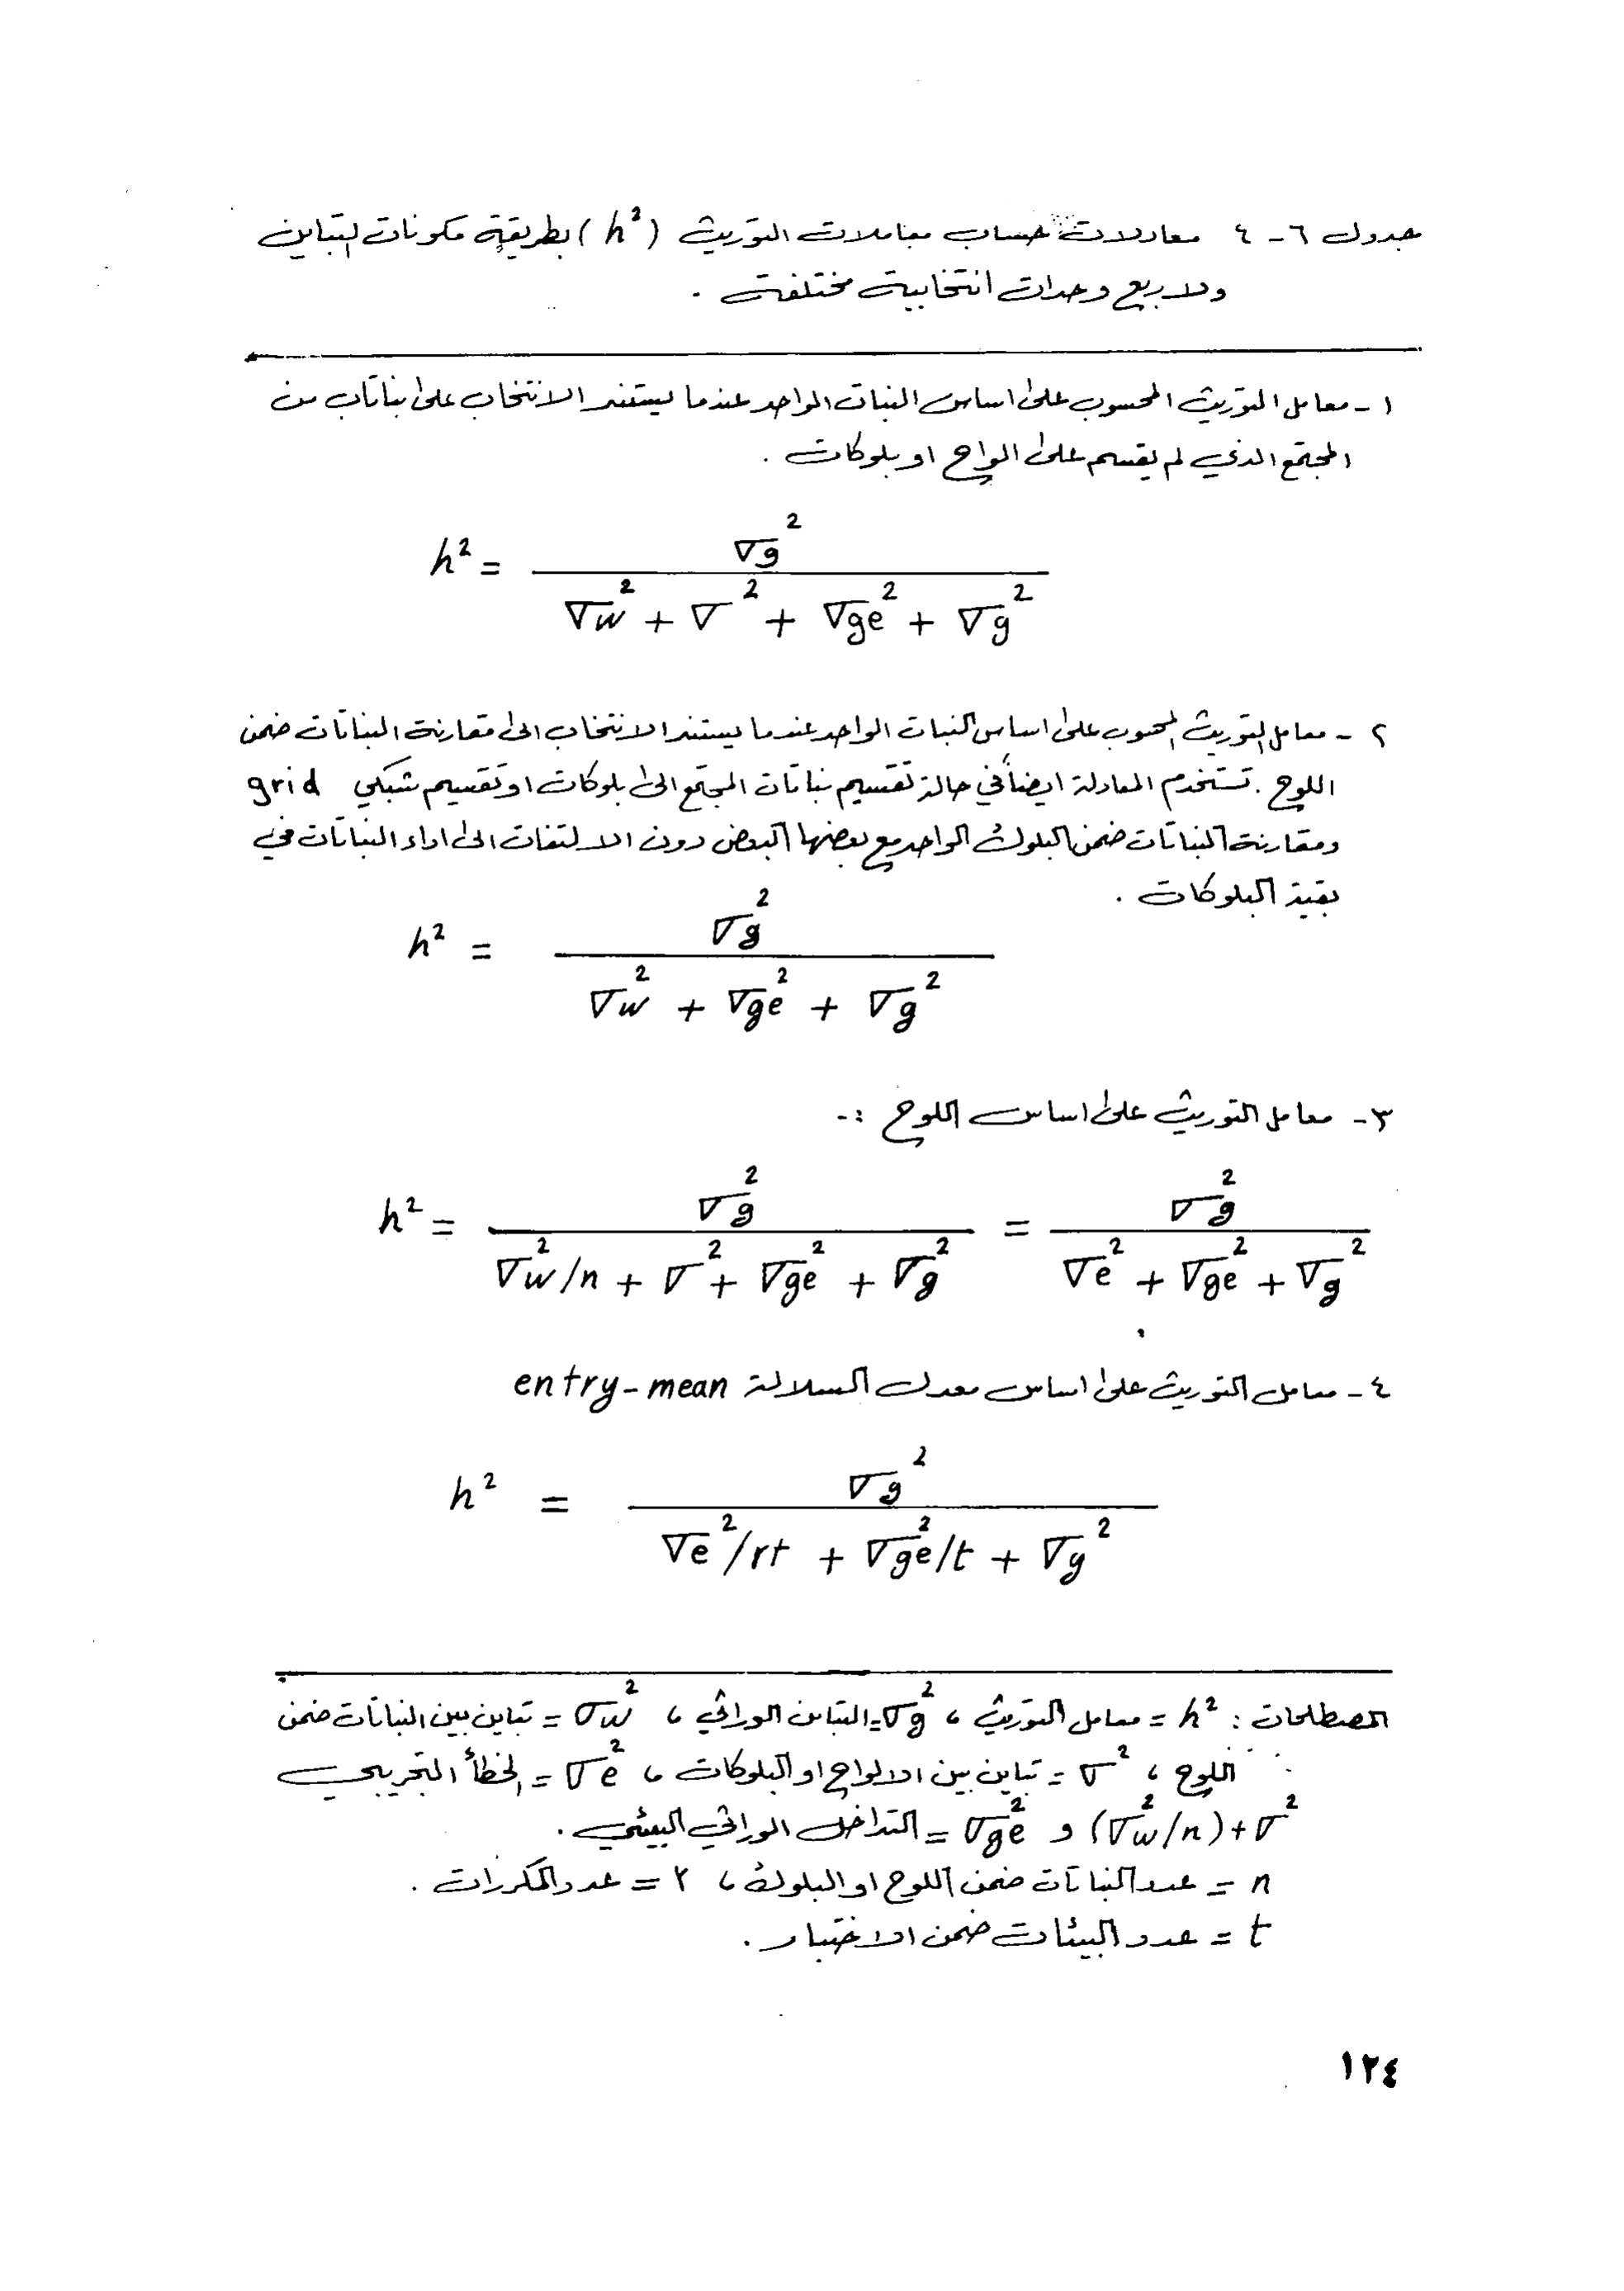 جدول ٦ - ٤ معادلات حساب معاملات التوريث (h²) بطريقة مكونات التباين
ولاربع وحدات انتخابية مختلفة .
١ - معامل التوريث المحسوب على اساس النبات الواحد عندما يستند الانتخاب على نباتات من
المجتمع الذي لم يقسم على الواح او بلوكات .
h² = σg² / (σw² + σ² + σge² + σg²)
٢ - معامل التوريث المحسوب على اساس النبات الواحد عندما يستند الانتخاب الى مقارنة النباتات ضمن
اللوح . تستخدم المعادلة ايضاً في حالة تقسيم نباتات المجتمع الى بلوكات او تقسيم شبكي grid
ومقارنة النباتات ضمن البلوك الواحد مع بعضها البعض دون الالتفات الى اداء النباتات في
بقية البلوكات .
h² = σg² / (σw² + σge² + σg²)
٣ - معامل التوريث على اساس اللوح :-
h² = σg² / (σw²/n + σ² + σge² + σg²) = σg² / (σe² + σge² + σg²)
٤ - معامل التوريث على اساس معدل السلالة entry-mean
h² = σg² / (σe²/rt + σge²/t + σg²)
المصطلحات : h² = معامل التوريث ، σg² = التباين الوراثي ، σw² = تباين بين النباتات ضمن
اللوح ، σ² = تباين بين الالواح او البلوكات ، σe² = الخطأ التجريبي
(σw²/n) + σ² و σge² = التداخل الوراثي البيئي .
n = عدد النباتات ضمن اللوح او البلوك ، r = عدد المكررات .
t = عدد البيئات ضمن الاختبار .
١٢٤